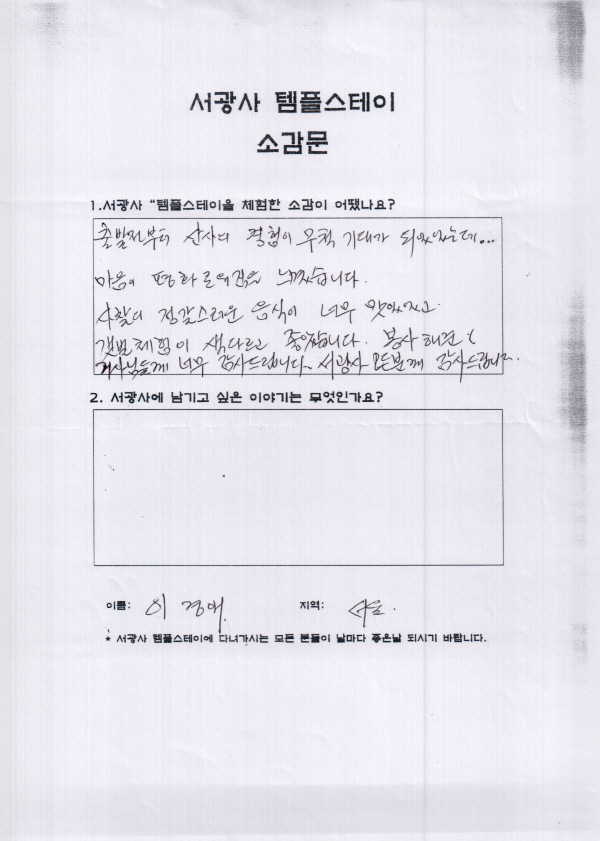 서광사 템플스테이
소감문
1.서광사 "템플스테이을 체험한 소감이 어땠나요?
출발전부터 산사의 경험이 무척 기대가 되었었는데...
마음의 평화로움을 느꼈습니다.
사찰의 정갈스러운 음식이 너무 맛있었고
갯벌체험이 색다르고 좋았습니다. 봉사해준
거사님들께 너무 감사드립니다. 서광사 모든분께 감사드립니다.
2. 서광사에 남기고 싶은 이야기는 무엇인가요?
이름: 이경애. 지역: 서울.
* 서광사 템플스테이에 다녀가시는 모든 분들이 날마다 좋은날 되시기 바랍니다.